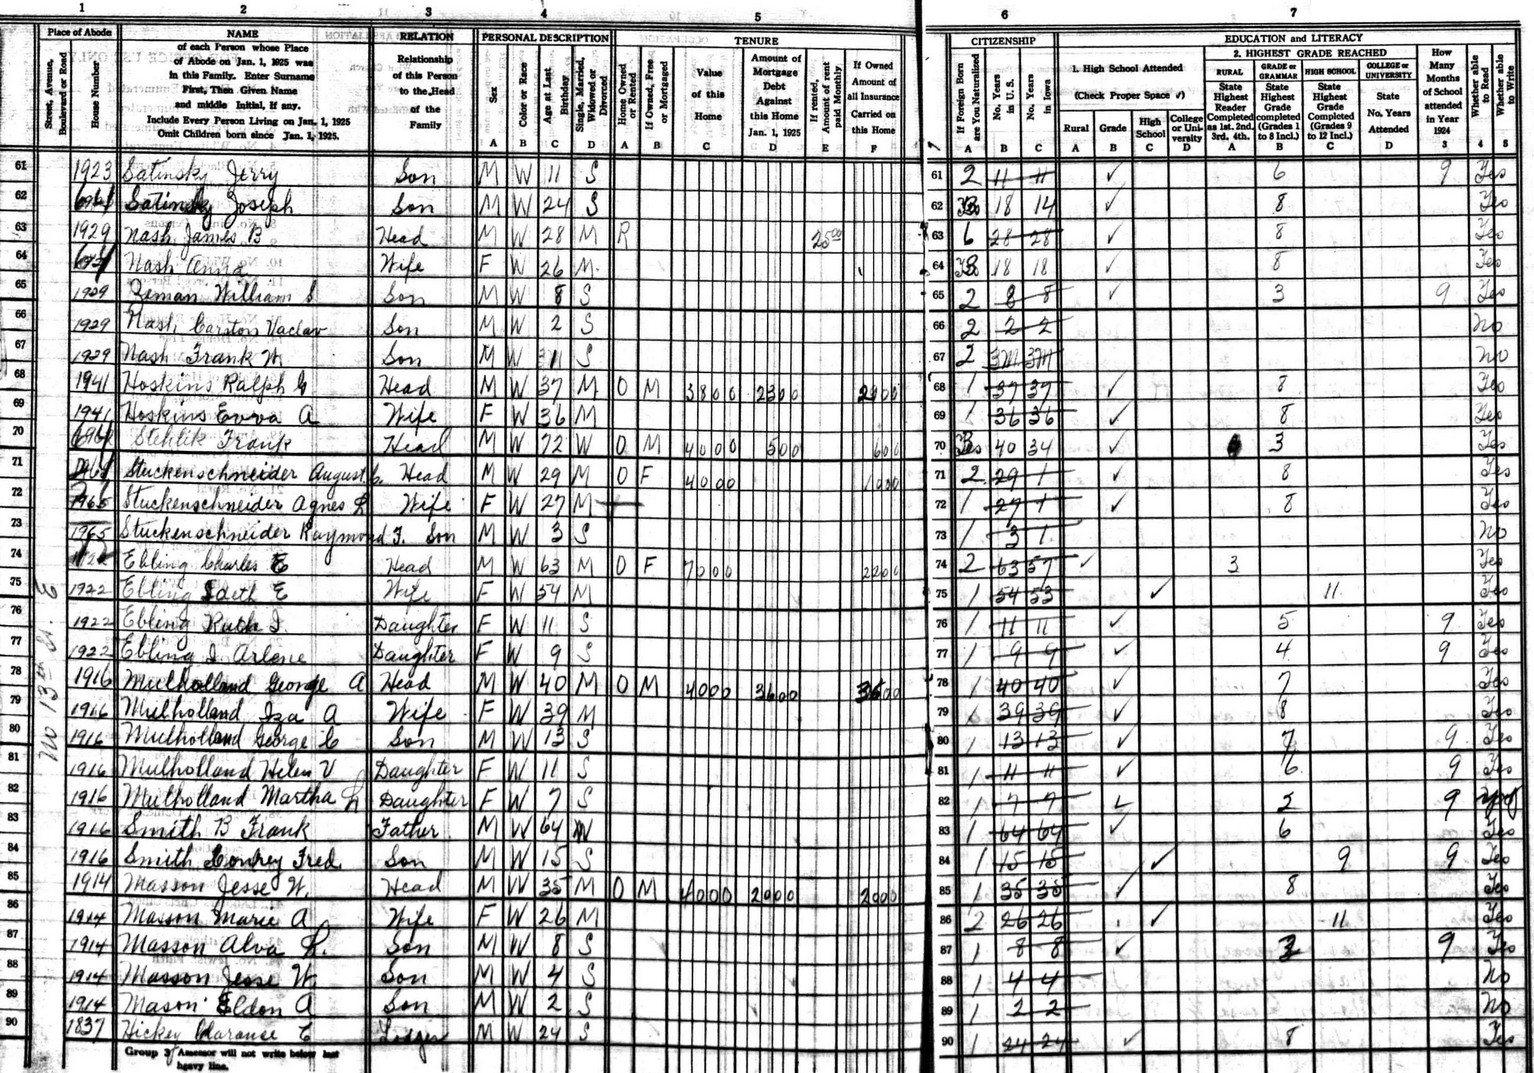 1 2 3 4 5 6 7
Place of Abode NAME RELATION PERSONAL DESCRIPTION TENURE CITIZENSHIP EDUCATION and LITERACY
Street, Avenue, Boulevard or Road
House Number
of each Person whose Place
of Abode on Jan. 1, 1925 was
in this Family. Enter Surname
First, Then Given Name
and middle Initial, if any.
Include Every Person Living on Jan. 1, 1925
Omit Children born since Jan. 1, 1925.
Relationship
of this Person
to the Head
of the
Family
Sex
Color or Race
Age at Last Birthday
Single, Married, Widowed or Divorced
Home Owned or Rented
If Owned, Free or Mortgaged
Value
of this
Home
Amount of
Mortgage
Debt
Against
this Home
Jan. 1, 1925
If rented, Amount of rent paid Monthly
If Owned
Amount of
all Insurance
Carried on
this Home
If Foreign Born are You Naturalized
No. Years in U.S.
No. Years in Iowa
1. High School Attended
(Check Proper Space ✓)
Rural Grade High School College or University
2. HIGHEST GRADE REACHED
RURAL State Highest Reader Completed as 1st. 2nd. 3rd. 4th.
GRADE or GRAMMAR State Highest Grade Completed (Grades 1 to 8 Incl.)
HIGH SCHOOL State Highest Grade Completed (Grades 9 to 12 Incl.)
COLLEGE or UNIVERSITY State No. Years Attended
How Many Months of School attended in Year 1924
Whether able to Read
Whether able to Write
A B C D A B C D E F A B C A B C D A B C D 3 4 5
No 13th St. E
61 1923 Satinsky Jerry Son M W 11 S 61 2 11 11 ✓ 6 9 Yes
62 Satinsky Joseph Son M W 24 S 62 18 14 ✓ 8 Yes
63 1929 Nash James B Head M W 28 M R 25 00 63 6 28 28 ✓ 8 Yes
64 Nash Anna Wife F W 26 M 64 18 18 ✓ 8 Yes
65 1929 Zeman William S Son M W 8 S 65 2 8 8 ✓ 3 9 Yes
66 1929 Nash Carston Vaclav Son M W 2 S 66 2 2 2 No
67 1929 Nash Frank W. Son M W S 67 2 3M 3M No
68 1941 Hoskins Ralph G Head M W 37 M O M 3800 2300 68 1 37 37 ✓ 8 Yes
69 1941 Hoskins Evva A Wife F W 36 M 69 1 36 36 ✓ 8 Yes
70 Stehlik Frank Head M W 72 W O M 4000 500 600 70 40 34 ✓ 3 Yes
71 Stuckenschneider August C. Head M W 29 M O F 4000 1000 71 2 29 1 ✓ 8 Yes
72 1965 Stuckenschneider Agnes Wife F W 27 M 72 1 27 1 ✓ 8 Yes
73 1965 Stuckenschneider Raymond F. Son M W 3 S 73 1 3 1 No
74 1922 Ebling Charles E Head M W 63 M O F 7000 2200 74 2 63 57 ✓ 3 Yes
75 1922 Ebling Edeth E Wife F W 54 M 75 1 54 53 ✓ 11 Yes
76 1922 Ebling Ruth I. Daughter F W 11 S 76 1 11 11 ✓ 5 9 Yes
77 1922 Ebling I. Arlene Daughter F W 9 S 77 1 9 9 ✓ 4 9 Yes
78 1916 Mulholland George A Head M W 40 M O M 4000 3600 3600 78 1 40 40 ✓ 7 Yes
79 1916 Mulholland Iza A Wife F W 39 M 79 1 39 39 ✓ 8 Yes
80 1916 Mulholland George C Son M W 13 S 80 1 13 13 ✓ 7 9 Yes
81 1916 Mulholland Helen V Daughter F W 11 S 81 1 11 11 ✓ 6 9 Yes
82 1916 Mulholland Martha L Daughter F W 7 S 82 1 7 7 ✓ 2 9
83 1916 Smith B Frank Father M W 64 W 83 1 64 64 ✓ 6 Yes
84 1916 Smith Fred Son M W 15 S 84 1 15 15 ✓ 9 9 Yes
85 1914 Masson Jesse W. Head M W 35 M O M 4000 2000 2000 85 1 35 35 ✓ 8 Yes
86 1914 Masson Marie A Wife F W 26 M 86 2 26 26 ✓ 11 Yes
87 1914 Masson Alva L. Son M W 8 S 87 1 8 8 ✓ 9 Yes
88 1914 Masson Jesse W. Son M W 4 S 88 1 4 4 No
89 1914 Mason Eldon A Son M W 2 S 89 1 2 2 No
90 1837 Hickey Clarance E Lodger M W 24 S 90 1 24 24 ✓ 8 Yes
Group 3 Assessor will not write below last
heavy line.